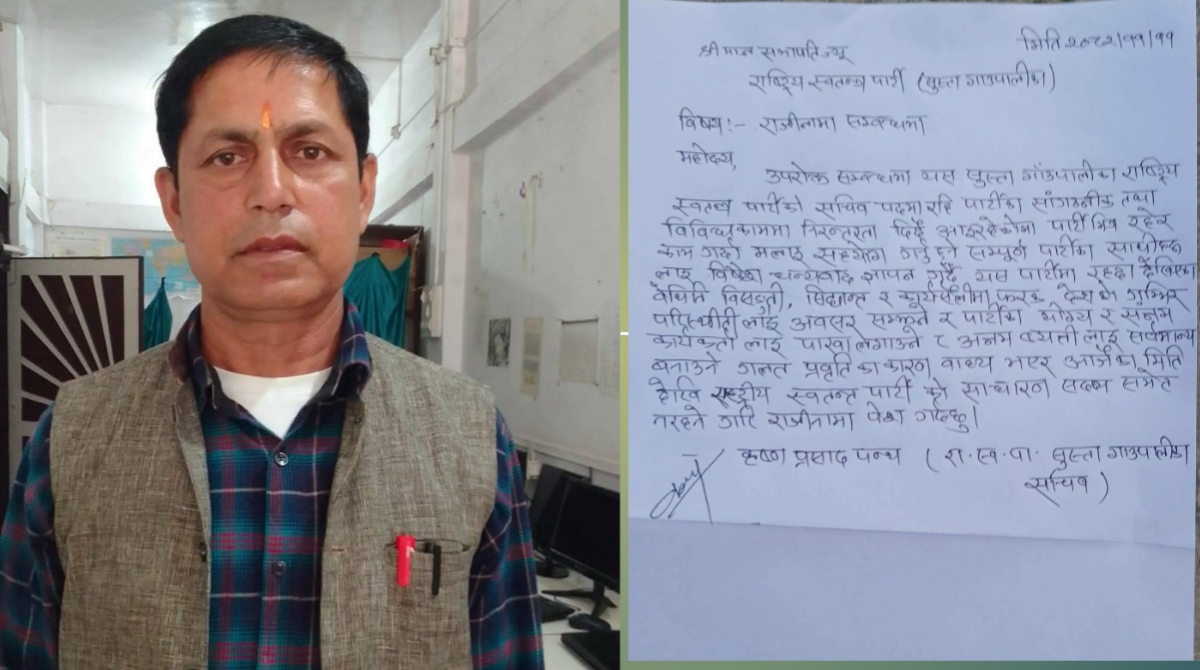 श्रीमान सभापतिज्यू
मिति २०८२/११/११
राष्ट्रिय स्वतन्त्र पार्टी (सुस्ता गाउपालीका)
विषय:- राजीनामा सम्बन्धमा
महोदय,
उपरोक्त सम्बन्धमा यस सुस्ता गाँउपालीका राष्ट्रिय
स्वतन्त्र पार्टीको सचिव पदमा रहि पार्टीका सांगठनीक तथा
विविधकाममा निरन्तरता दिदैँ आइरहेकोमा पार्टी भित्र रहेर
काम गर्दा मलाइ सहयोग गर्नु हुने सम्पूर्ण पार्टीका साथीहरु
लाइ विषेश धन्यवाद ज्ञापन गर्दै यस पार्टीमा रहदा देखिएका
वेथिति विसङ्गती, सिद्यान्त र कार्यसैलीमा फरक देश को गम्भिर
परिस्थीती लाइ अवसर सम्झने र पार्टीका योग्य र सक्षम
कार्यकर्ता लाइ पाखा लगाउने र अक्षम व्यक्ती लाइ सर्वमान्य
बनाउने गलत प्रवृति का कारण वाध्य भएर आजका मिति
देखि राष्ट्रीय स्वतन्त्र पार्टी को साधारण सदस्य समेत
नरहने गरि राजीनामा पेश गर्दछु।
कृष्ण प्रसाद पन्थ (रा.स्व.पा. सुस्ता गाउपालीका
सचिव)